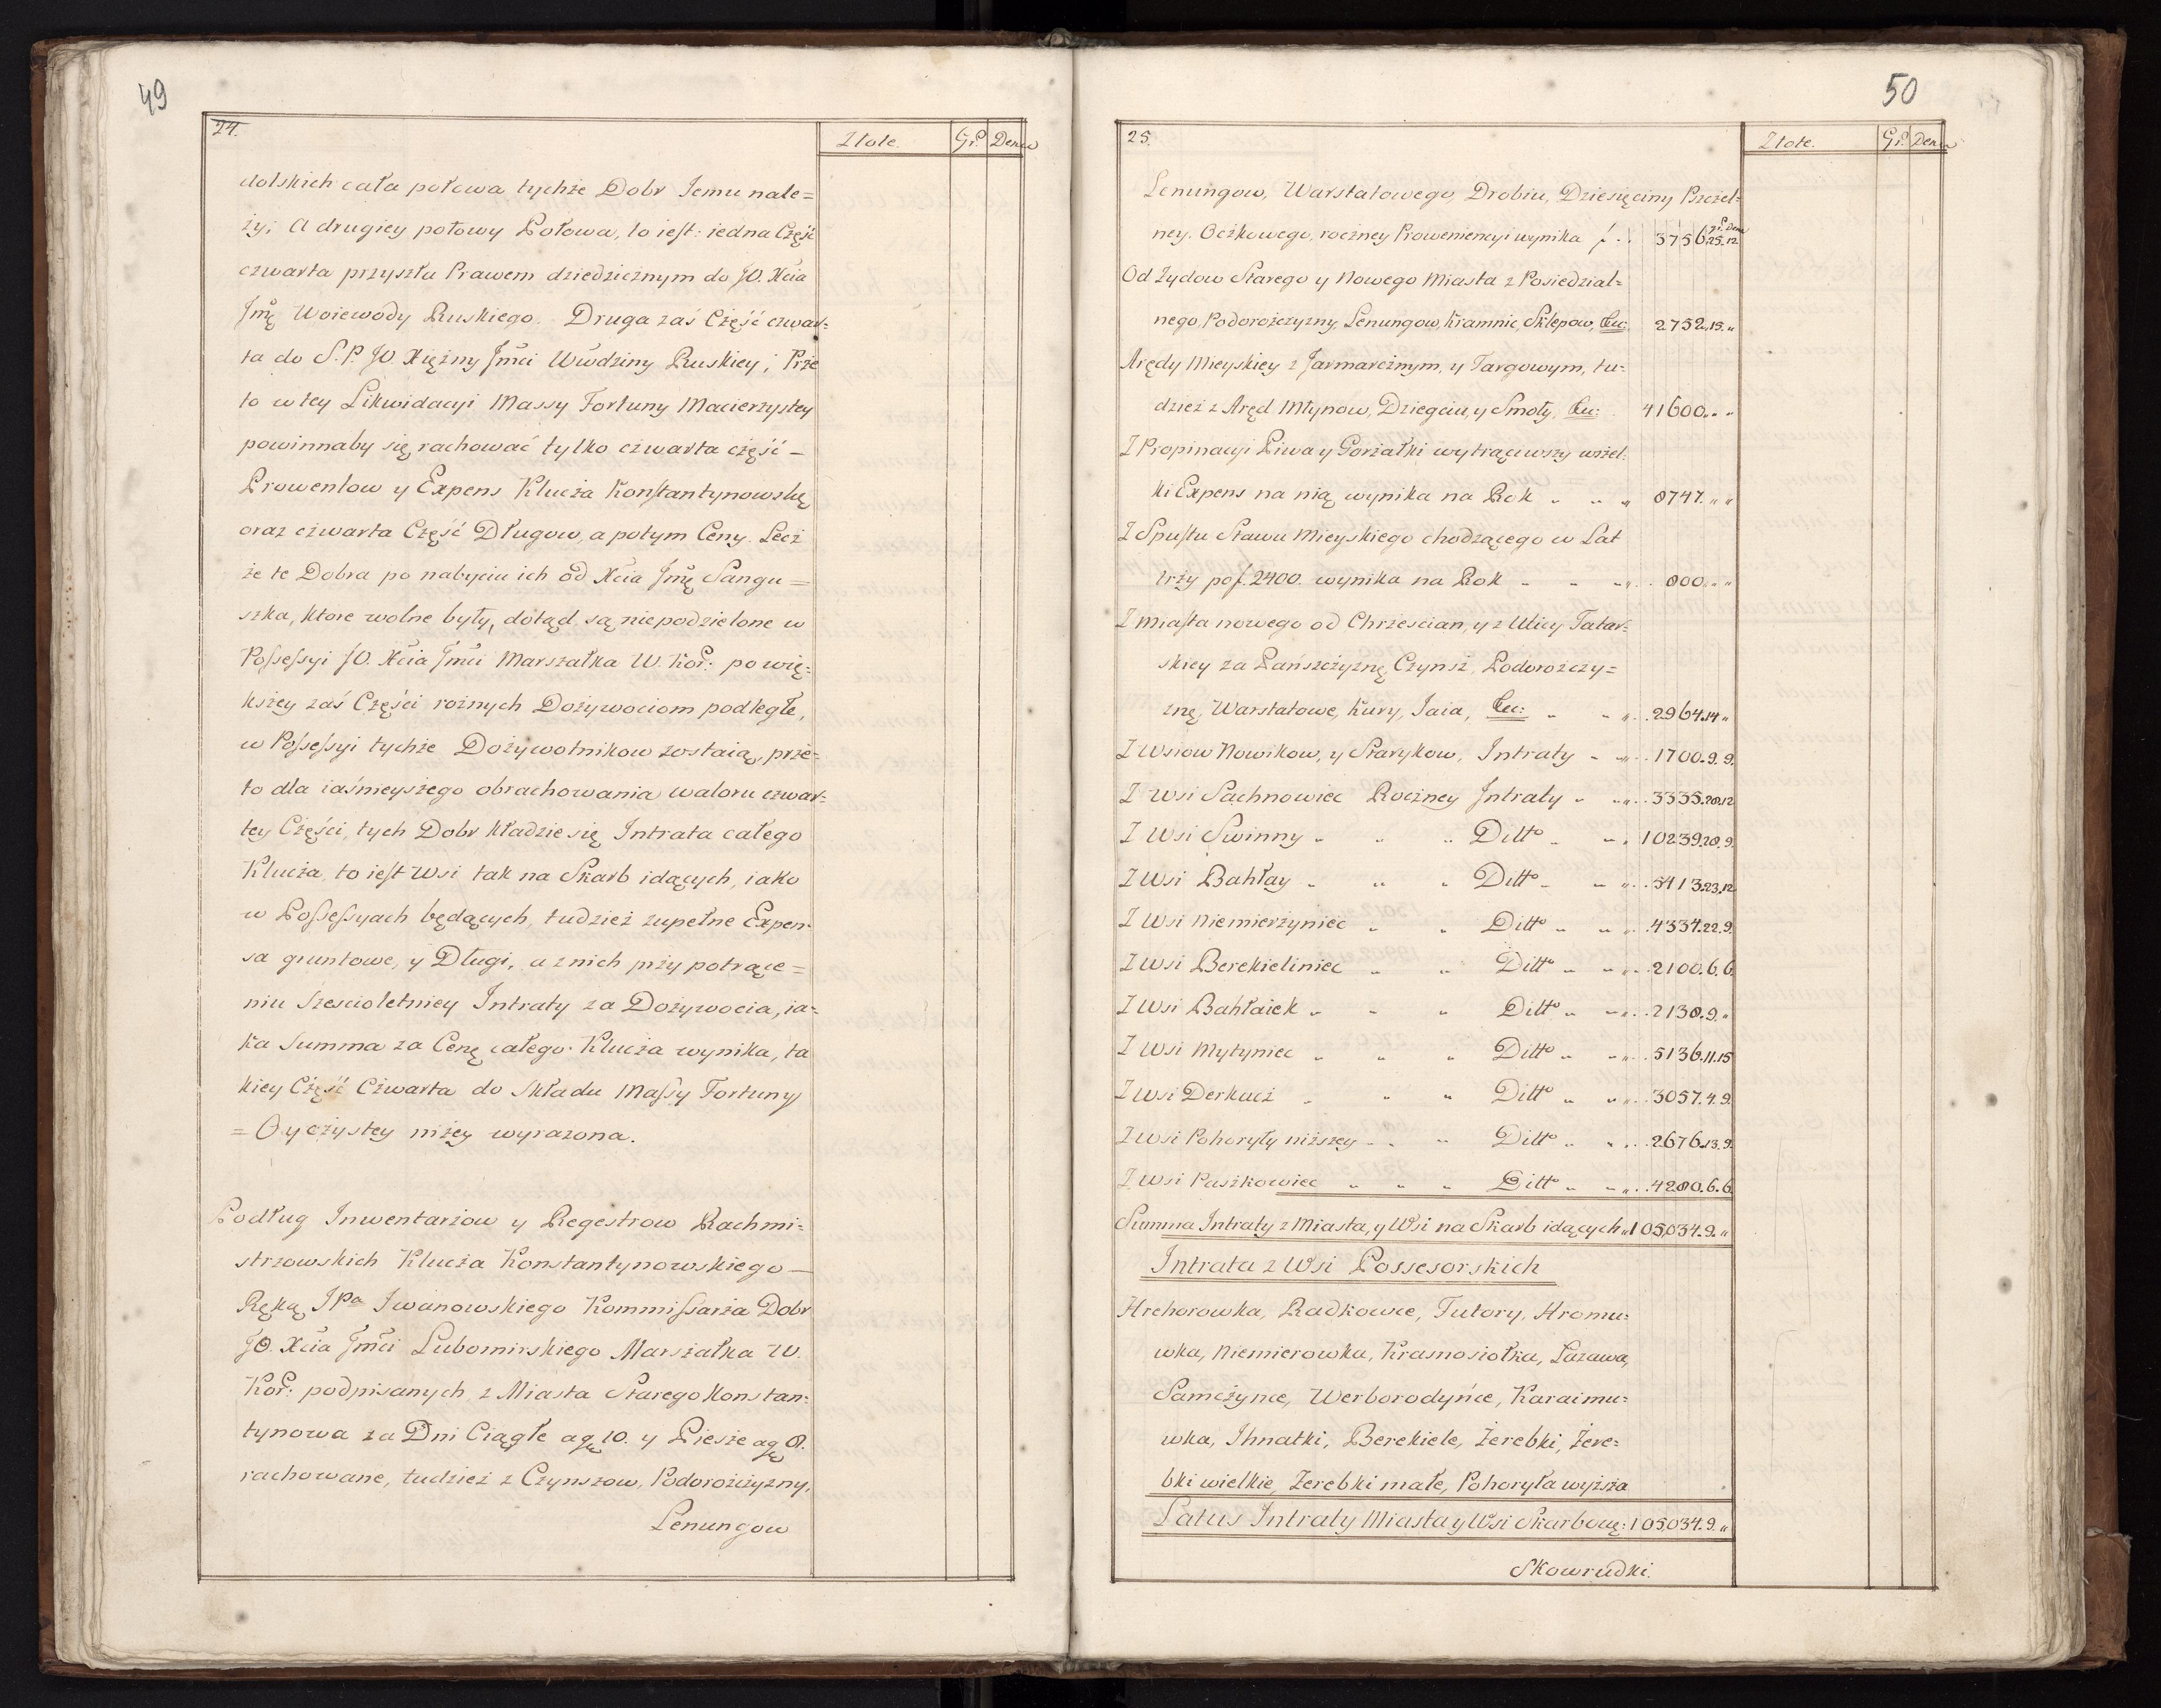 49
24.
Złote. Gr. Dena
dolskich cała połowa tychże Dobr Jemu nale=
ży; A drugiey połowy Połowa, to iest: iedna Część
czwarta przyszła Prawem dziedzicznym do JO. Xcia
Jmę Woiewody Ruskiego. Druga zaś Część czwar=
ta do S. P. JO Xiężny Jmci Wwdziny Ruskiey; Prze
to w tey Likwidacyi Massy Fortuny Macierzystey
powinnaby się rachować tylko czwarta część –
Prowentow y Expens Klucza Konstantynowskg
oraz czwarta Część Długow, a potym Ceny. Lecz
że te Dobra po nabyciu ich od Xcia Jmę Sangu=
szka, ktore wolne były, dotąd są niepodzielone w
Possessyi JO. Xcia Jmci Marszałka W. Kor: po wię=
kszey zaś Części rożnych Dożywociom podległe,
w Possessyi tychże Dożywotnikow zostaią, prze=
to dla iaśnieyszego obrachowania waloru czwar=
tey Części, tych Dobr kładzie się Intrata całego
Klucza, to iest Wsi tak na Skarb idących, iako
w Possessyach będących, tudzież zupełne Expen=
sa gruntowe, y Długi, a z nich przy potrące=
niu Szescioletniey Intraty za Dożywocia, ia=
ka Summa za Cenę całego Klucza wynika, ta
kiey Część Czwarta do Składu Massy Fortuny
= Oyczystey niżey wyrazona.
Podług Inwentarzow y Regestrow Rachmi=
strzowskich Klucza Konstantynowskiego –
Ręką JPa Iwanowskiego Kommissarza Dobr
JO. Xcia Jmci Lubomirskiego Marszałka W.
Kor: podpisanych, z Miasta Starego Konstan=
tynowa za Dni Ciągłe a gę 10. y Piesze a gę 8.
rachowane, tudzież z Czynszow, Podorożczyzny,
Lenungow
50
25.
Złote. Gr. Dena
Lenungow, Warstatowego, Drobiu, Dziesięciny Pszczel=
ney. Oczkowego, roczney Proweniencyi wynika f. . 3756.25.12
Od Żydow Starego y Nowego Miasta z Posiedzial=
nego, Podorożczyzny, Lenungow, Kramnic, Sklepow, &c: 2752.15.„
Arędy Mieyskiey z Jarmarcznym, y Targowym, tu=
dzież z Aręd Młynow, Dziegciu, y Smoły, &c: 41600.„ „
Z Propinacyi Piwa y Gorzałki wytrąciwszy wszel=
ki Expens na nią wynika na Rok „ „ „ 8747.„ „
Z Spustu Stawu Mieyskiego chodzącego w Lat
trzy po f. 2400. wynika na Rok „ „ „ 800.„ „
Z Miasta nowego od Chrześcian, y z Ulicy Tatar=
skiey za Pańszczyznę, Czynsz, Podorożczy=
znę, Warstatowe, Kury, Jaia, &c: „ „ „ 2964.14 „
Z Wsiow Nowikow, y Starykow, Intraty „ „ 1700.9.9.
Z Wsi Sachnowiec Roczney Intraty „ „ 3335.20.12
Z Wsi Swinny „ „ „ Ditto „ „ 10239.20.9.
Z Wsi Bahłay „ „ „ Ditto „ „ 5413.23.12
Z Wsi Niemierzyniec „ „ Ditto „ „ 4334.22.9.
Z Wsi Berekieliniec „ „ Ditto „ „ 2100.6.6.
Z Wsi Bahłaiek „ „ „ Ditto „ „ 2138.9.„
Z Wsi Mytyniec „ „ „ Ditto „ „ 5136.11.15
Z Wsi Derkacz „ „ „ Ditto „ „ 3057.4.9.
Z Wsi Pohoryły niższey „ „ Ditto „ „ 2676.13.9.
Z Wsi Paszkowiec „ „ „ Ditto „ „ 4280.6.6.
Summa Intraty z Miasta, y Wsi na Skarb idących „ 105,034.9.„
Intrata z Wsi Possesorskich
Hrehorowka, Radkowce, Tutory, Hromu=
wka, Niemierowka, Krasnosiołka, Łazawa,
Samczynce, Werborodyńce, Karaimu=
wka, Ihnatki, Berekiele, Żerebki, Żere=
bki wielkie, Żerebki małe, Pohoryła wyższa
Latus Intraty Miasta y Wsi Skarbowę: 105,034.9.„
Skowrudki.